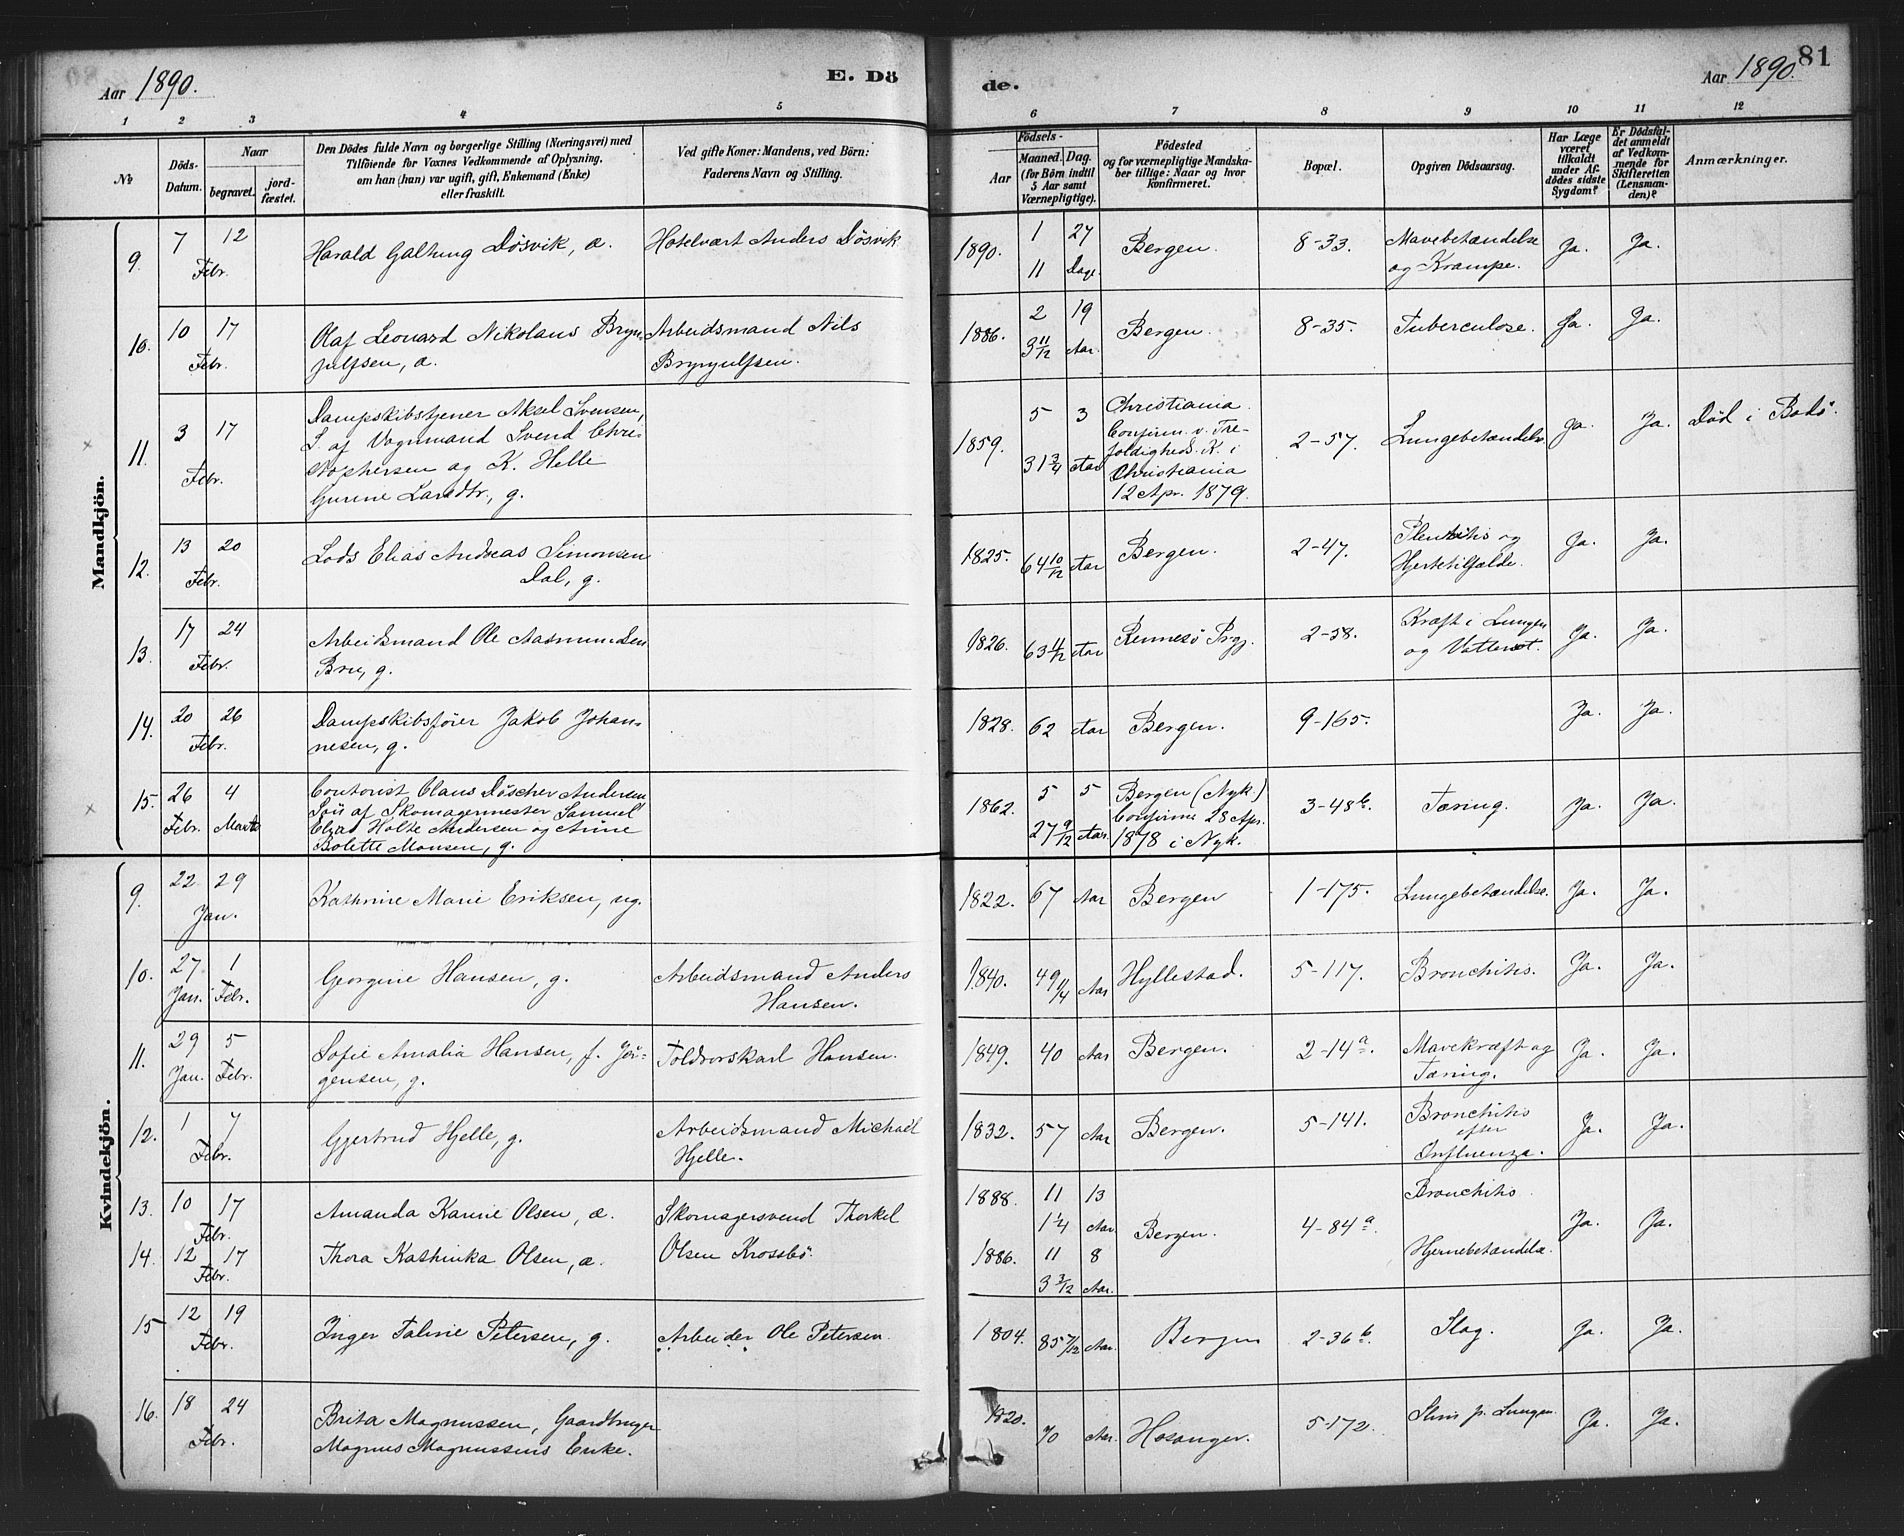 81
Aar 1890.
E. Dö
de.
Aar 1890.
1 2 3 4 5 6 7 8 9 10 11 12
No
Döds-
Datum.
Naar
begravet.
jord-
fæstet.
Den Dödes fulde Navn og borgerlige Stilling (Næringsvei) med
Tilföiende for Voxnes Vedkommende af Oplysning.
om han (hun) var ugift, gift, Enkemand (Enke)
eller fraskilt.
Ved gifte Koner: Mandens, ved Börn:
Faderens Navn og Stilling.
Födsels-
Aar
Maaned.
Dag.
(for Börn indtil
5 Aar samt
Værnepligtige).
Födested
og for værnepligtige Mandska-
ber tillige: Naar og hvor
konfirmeret.
Bopæl.
Opgiven Dödsaarsag.
Har Læge
været
tilkaldt
under Af-
dödes sidste
Sygdom?
Er Dödsfal-
det anmeldt
af Vedkom-
mende for
Skifteretten
(Lensman-
den)?
Anmærkninger.
Mandkjön.
9. 7 12 Febr. Harald Galtung Døsvik, æ. Hotelvært Anders Døsvik 1890. 1 27 Bergen. 8-33. Mavebetændelse Ja. Ja.
11 Dage og Krampe.
10. 10 17 Febr. Olaf Leonard Nikolaus Bryn- Arbeidsmand Nils 1886. 2 19 Bergen. 8-35. Tuberculose. Ja. Ja.
julfsen, æ. Brynjulfsen. 3 11/12 Aar.
11. 3 17 Febr. Dampskibstjener Aksel Svensen, 1859. 5 3 Christiania. 2-57. Lungebetændelse. Ja. Ja. Død i Bodø.
S. af Vognmand Svend Chri- Confirm. v. Tre-
stophersen og K. Helle 31 3/4 Aar foldigheds. K. i
Gurine Larsdtr, g. Christiania
12 Apr. 1879.
12. 13 20 Febr. Lods Elias Andreas Simonsen 1825. 64 10/12 Aar Bergen. 2-47. Pleuritis og Ja. Ja.
Dal, g. Hjertetilfælde.
13. 17 24 Febr. Arbeidsmand Ole Aasmundsen 1826. 63 11/12 Aar Rennesø Prgj. 2-58. Kræft i Lungen Ja. Ja.
Bru, g. og Vattersot.
14. 20 26 Febr. Dampskibsfører Jakob Johan- 1828. 62 Aar Bergen. 9-165. Ja. Ja.
nesen, g.
15. 26 Febr. 4 Marts Contorist Claus Döscher Andersen 1862. 5 5 Bergen (Nyk.) 3-48 b. Tæring. Ja. Ja.
Søn af Skomagermester Samuel Confirm. 28 Apr.
Elias Holte Andersen og Anne 27 9/12 Aar. 1878 i Nyk.
Bolette Monsen, g.
Kvindekjön.
9. 22 29 Jan. Kathrine Marie Eriksen, ug. 1822. 67 Aar Bergen 1-175. Lungebetændelse. Ja. Ja.
10. 27 Jan. 1 Febr. Georgine Hansen, g. Arbeidsmand Anders 1840. 49 1/4 Aar Hyllestad. 5-117. Bronchitis. Ja. Ja.
Hansen.
11. 29 Jan. 5 Febr. Sofie Amalia Hansen, f. Jør- Toldrorskarl Hansen. 1849. 40 Aar Bergen. 2-14 a. Mavekræft og Ja. Ja.
gensen, g. Tæring.
12. 1 7 Febr. Gjertrud Hjelle, g. Arbeidsmand Michael 1832. 57 Aar Bergen. 5-141. Bronchitis Ja. Ja.
Hjelle. efter
Influenza.
13. 10 17 Febr. Amanda Karine Olsen, æ. Skomagersvend Thorkel 1888. 11 13 Bergen. 4-84 a. Bronchitis Ja. Ja.
1 1/4 Aar
14. 12 17 Febr. Thora Kathinka Olsen, æ. Olsen Krossbø. 1886. 11 8 Hjernebetændelse.
3 3/12 Aar.
15 12 19 Febr. Inger Taline Petersen, g. Arbeider Ole Petersen. 1804. 85 7/12 Aar. Bergen 2-36 b. Slag. Ja. Ja.
16. 18 24 Febr. Brita Magnussen, Gaardbruger 1820. 70 Aar. Hosanger. 5-172. Slim p. Lungen. Ja. Ja.
Magnus Magnussens Enke.